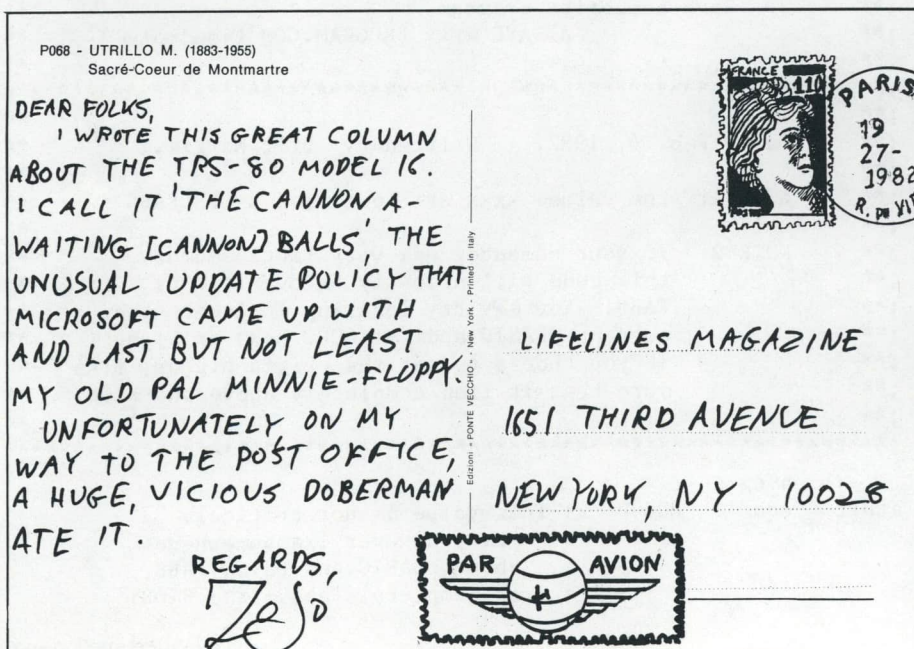 P068 - UTRILLO M. (1883-1955)
Sacré-Coeur de Montmartre
DEAR FOLKS,
I WROTE THIS GREAT COLUMN
ABOUT THE TRS-80 MODEL 16.
I CALL IT 'THE CANNON, A-
WAITING [CANNON] BALLS' THE
UNUSUAL UPDATE POLICY THAT
MICROSOFT CAME UP WITH
AND LAST BUT NOT LEAST
MY OLD PAL MINNIE-FLOPPY.
UNFORTUNATELY ON MY
WAY TO THE POST OFFICE,
A HUGE, VICIOUS DOBERMAN
ATE IT.
REGARDS,
ZoSo
Edizioni - PONTE VECCHIO - New York - Printed in Italy
FRANCE 110
POSTES
PARIS
19
27-
1982
LIFELINES MAGAZINE
1651 THIRD AVENUE
NEW YORK, NY 10028
PAR AVION